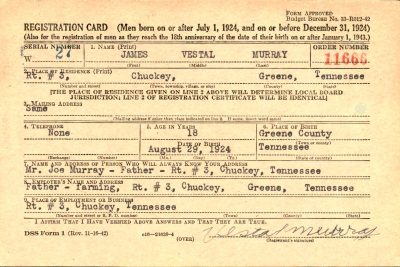 FORM APPROVED
Budget Bureau No. 33-R012-42
REGISTRATION CARD (Men born on or after July 1, 1924, and on or before December 31, 1924)
(Also for the registration of men as they reach the 18th anniversary of the date of their birth on or after January 1, 1943.)
SERIAL NUMBER 1. NAME (Print) ORDER NUMBER
W 27 JAMES VESTAL MURRAY 11666
(First) (Middle) (Last)
2. PLACE OF RESIDENCE (Print)
Rt. # 3, Chuckey, Greene, Tennessee
(Number and street) (Town, township, village, or city) (County) (State)
[THE PLACE OF RESIDENCE GIVEN ON LINE 2 ABOVE WILL DETERMINE LOCAL BOARD
JURISDICTION; LINE 2 OF REGISTRATION CERTIFICATE WILL BE IDENTICAL]
3. MAILING ADDRESS
Same
(Mailing address if other than place indicated on line 2. If same, insert word same)
4. TELEPHONE 5. AGE IN YEARS 6. PLACE OF BIRTH
None 18 Greene County
DATE OF BIRTH (Town or county)
August 29, 1924 Tennessee
(Exchange) (Number) (Mo.) (Day) (Yr.) (State or country)
7. NAME AND ADDRESS OF PERSON WHO WILL ALWAYS KNOW YOUR ADDRESS
Mr. Joe Murray - Father - Rt. # 3, Chuckey, Tennessee
8. EMPLOYER'S NAME AND ADDRESS
Father - farming, Rt. # 3, Chuckey, Greene, Tennessee
9. PLACE OF EMPLOYMENT OR BUSINESS
Rt. # 3, Chuckey, Tennessee
(Number and street or R. F. D. number) (Town) (County) (State)
I AFFIRM THAT I HAVE VERIFIED ABOVE ANSWERS AND THAT THEY ARE TRUE.
DSS Form 1 (Rev. 11-16-42) (OVER) Vestal Murray
(Registrant's signature)